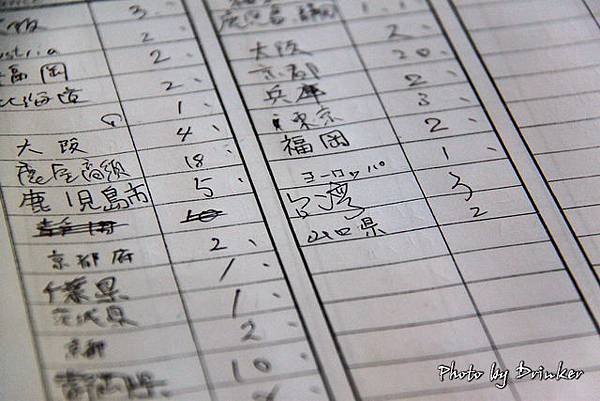 大阪 3、
ustria 2、
福岡 2、
北海道 2、
〃 1、
大阪 4、
鹿屋 18、
鹿児島市 5、
京都府 2、
千葉県 1、
茨城県 1、
京都 2
静岡県 10
鹿児島 静岡 1、1、
大阪 2、
京都 20、
兵庫 2、
東京 3、
福岡 2、
ヨーロッパ 1、
台湾 3
山口県 2
Photo by Drinker